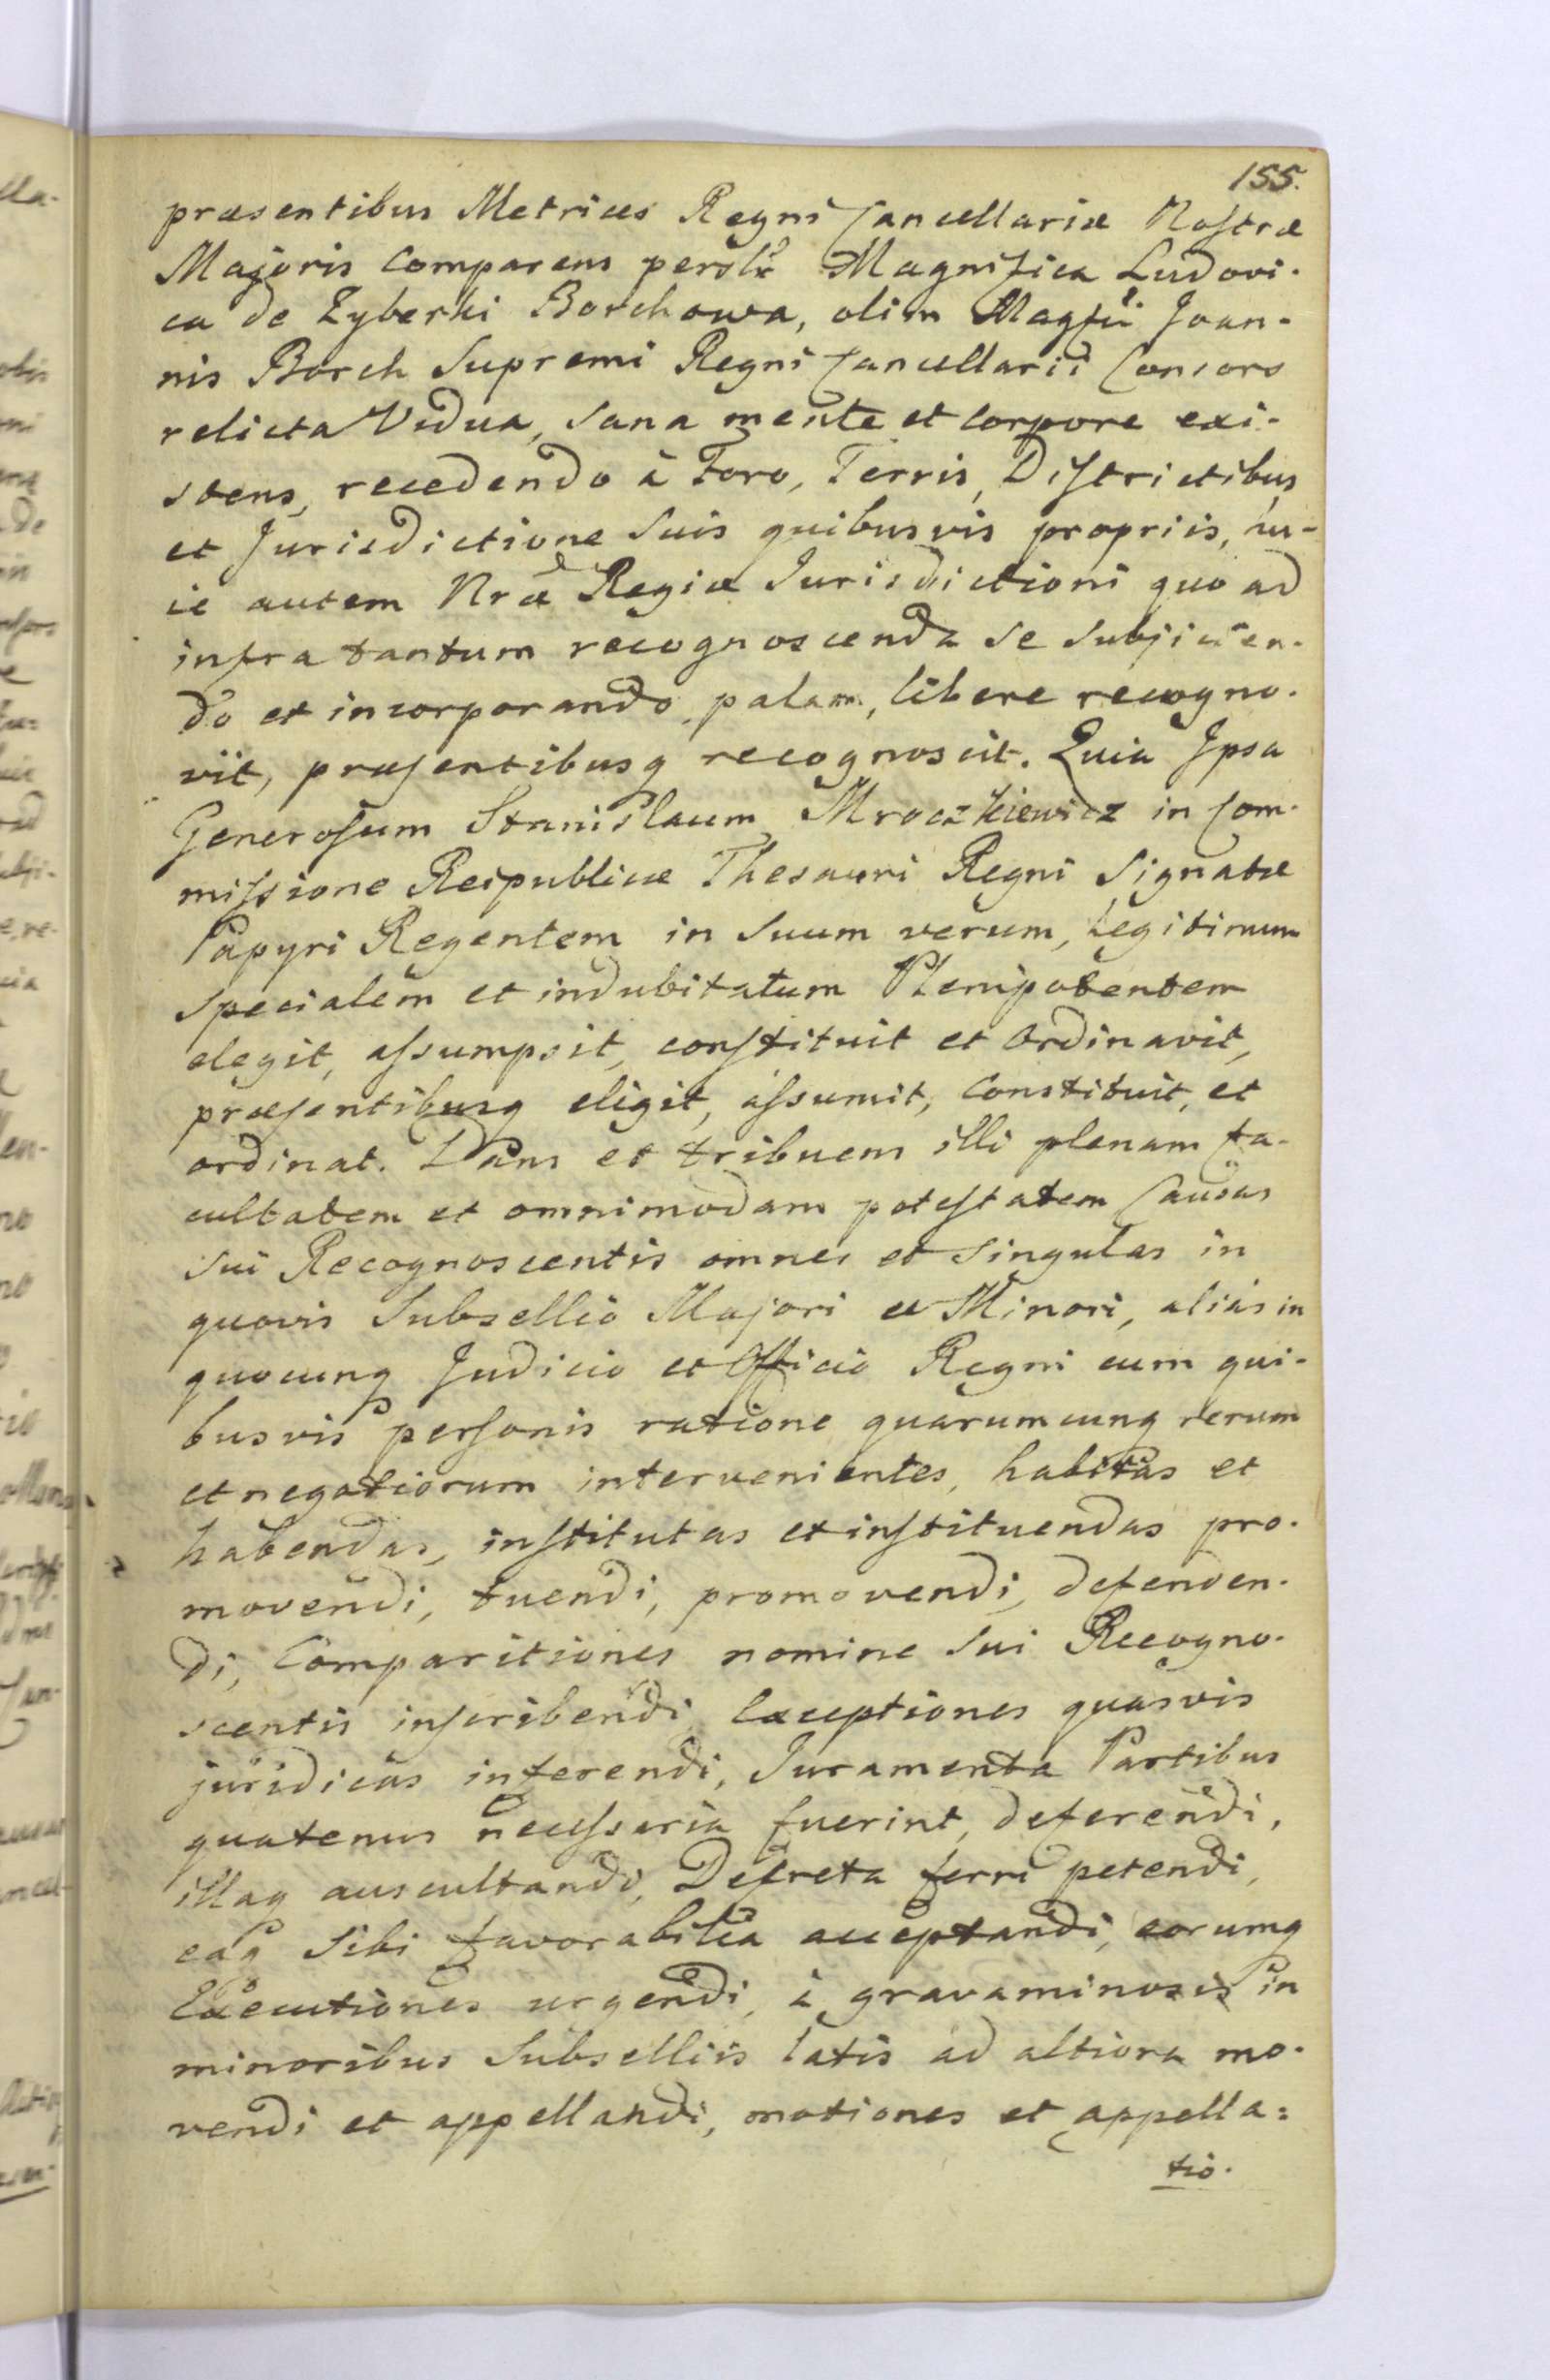 155.
præsentibus Metrices Regni Cancellariæ Nostræ
Majoris Comparens persolr Magnifica Ludovi-
ca de Zyberki Borchowa, olim Magfii Joan-
nis Borch Supremi Regni Cancellarii Consors
relicta Vidua, sana mente et Corpore exi-
stens, recedendo à Foro, Terris, Districtibus
et Jurisdictione Suis quibusvis propriis, hu-
ic autem Nræ Regiæ Jurisdictioni quo ad
infra tantum recognoscenda se Subjicien-
do et incorporando palam, libere recogno-
vit, præsentibusq recognoscit. Quia Ipsa
Generosum Stanislaum Mroczkiewicz in Com-
missione Reipublicæ Thesauri Regni Signatæ
Papyri Regentem in Suum verum, Legitimum
Specialem et indubitatum Plenipotentem
elegit, assumpsit, constituit et Ordinavit,
præsentibusq eligit, assumit, Constituit, et
ordinat. Dans et tribuens illi plenam fa-
cultatem et omnimodam potestatem Causas
Sui Recognoscentis omnes et Singulas in
quovis Subsellio Majori et Minori, aliàs in
quocunq Judicio et Officio Regni cum qui-
busvis personis ratione quarumcunq rerum
et negotiorum intervenientes, habitas et
habendas, institutas et instituendas pro-
movendi, tuendi, promovendi, defenden-
di, Comparitiones nomine Sui Recogno-
scentis inscribendi Exceptiones quasvis
juridicas inferendi, Juramenta Partibus
quatenus necessaria fuerint, deferendi,
illaq auscultandi, Decreta ferri petendi,
eaq Sibi favorabilia acceptandi, eorumq
Executiones urgendi, à gravaminosis in
minoribus Subselliis latis ad altiora mo-
vendi et appellandi, motiones et appella=
tio.